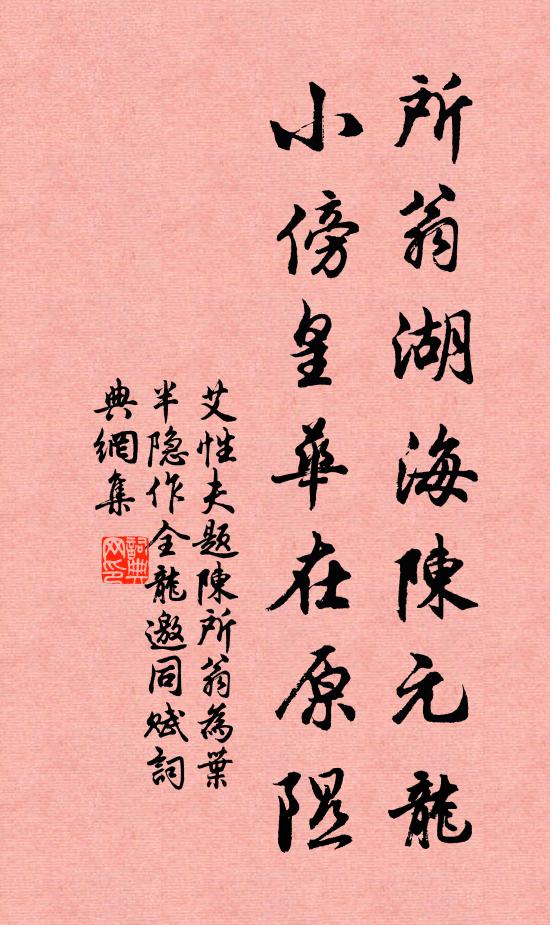 所翁湖海陳元龍
小傍皇華在原隰
艾性夫題陳所翁為葉
半隐作全龍邀同赋詞
典網集
詞典网印